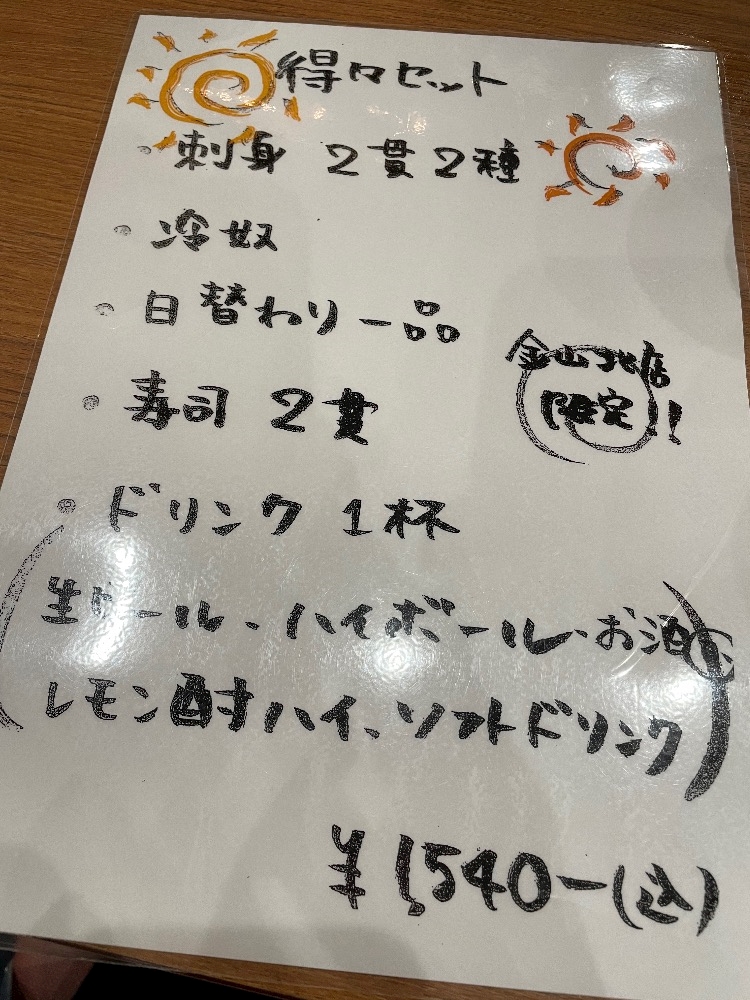 得々セット
・刺身 2貫2種
・冷奴
・日替わり一品
・寿司 2貫
・ドリンク 1杯
(生ビール、ハイボール、お酒(小)
レモン酎ハイ、ソフトドリンク)
金山北店
限定!!
¥1,540ー(込)